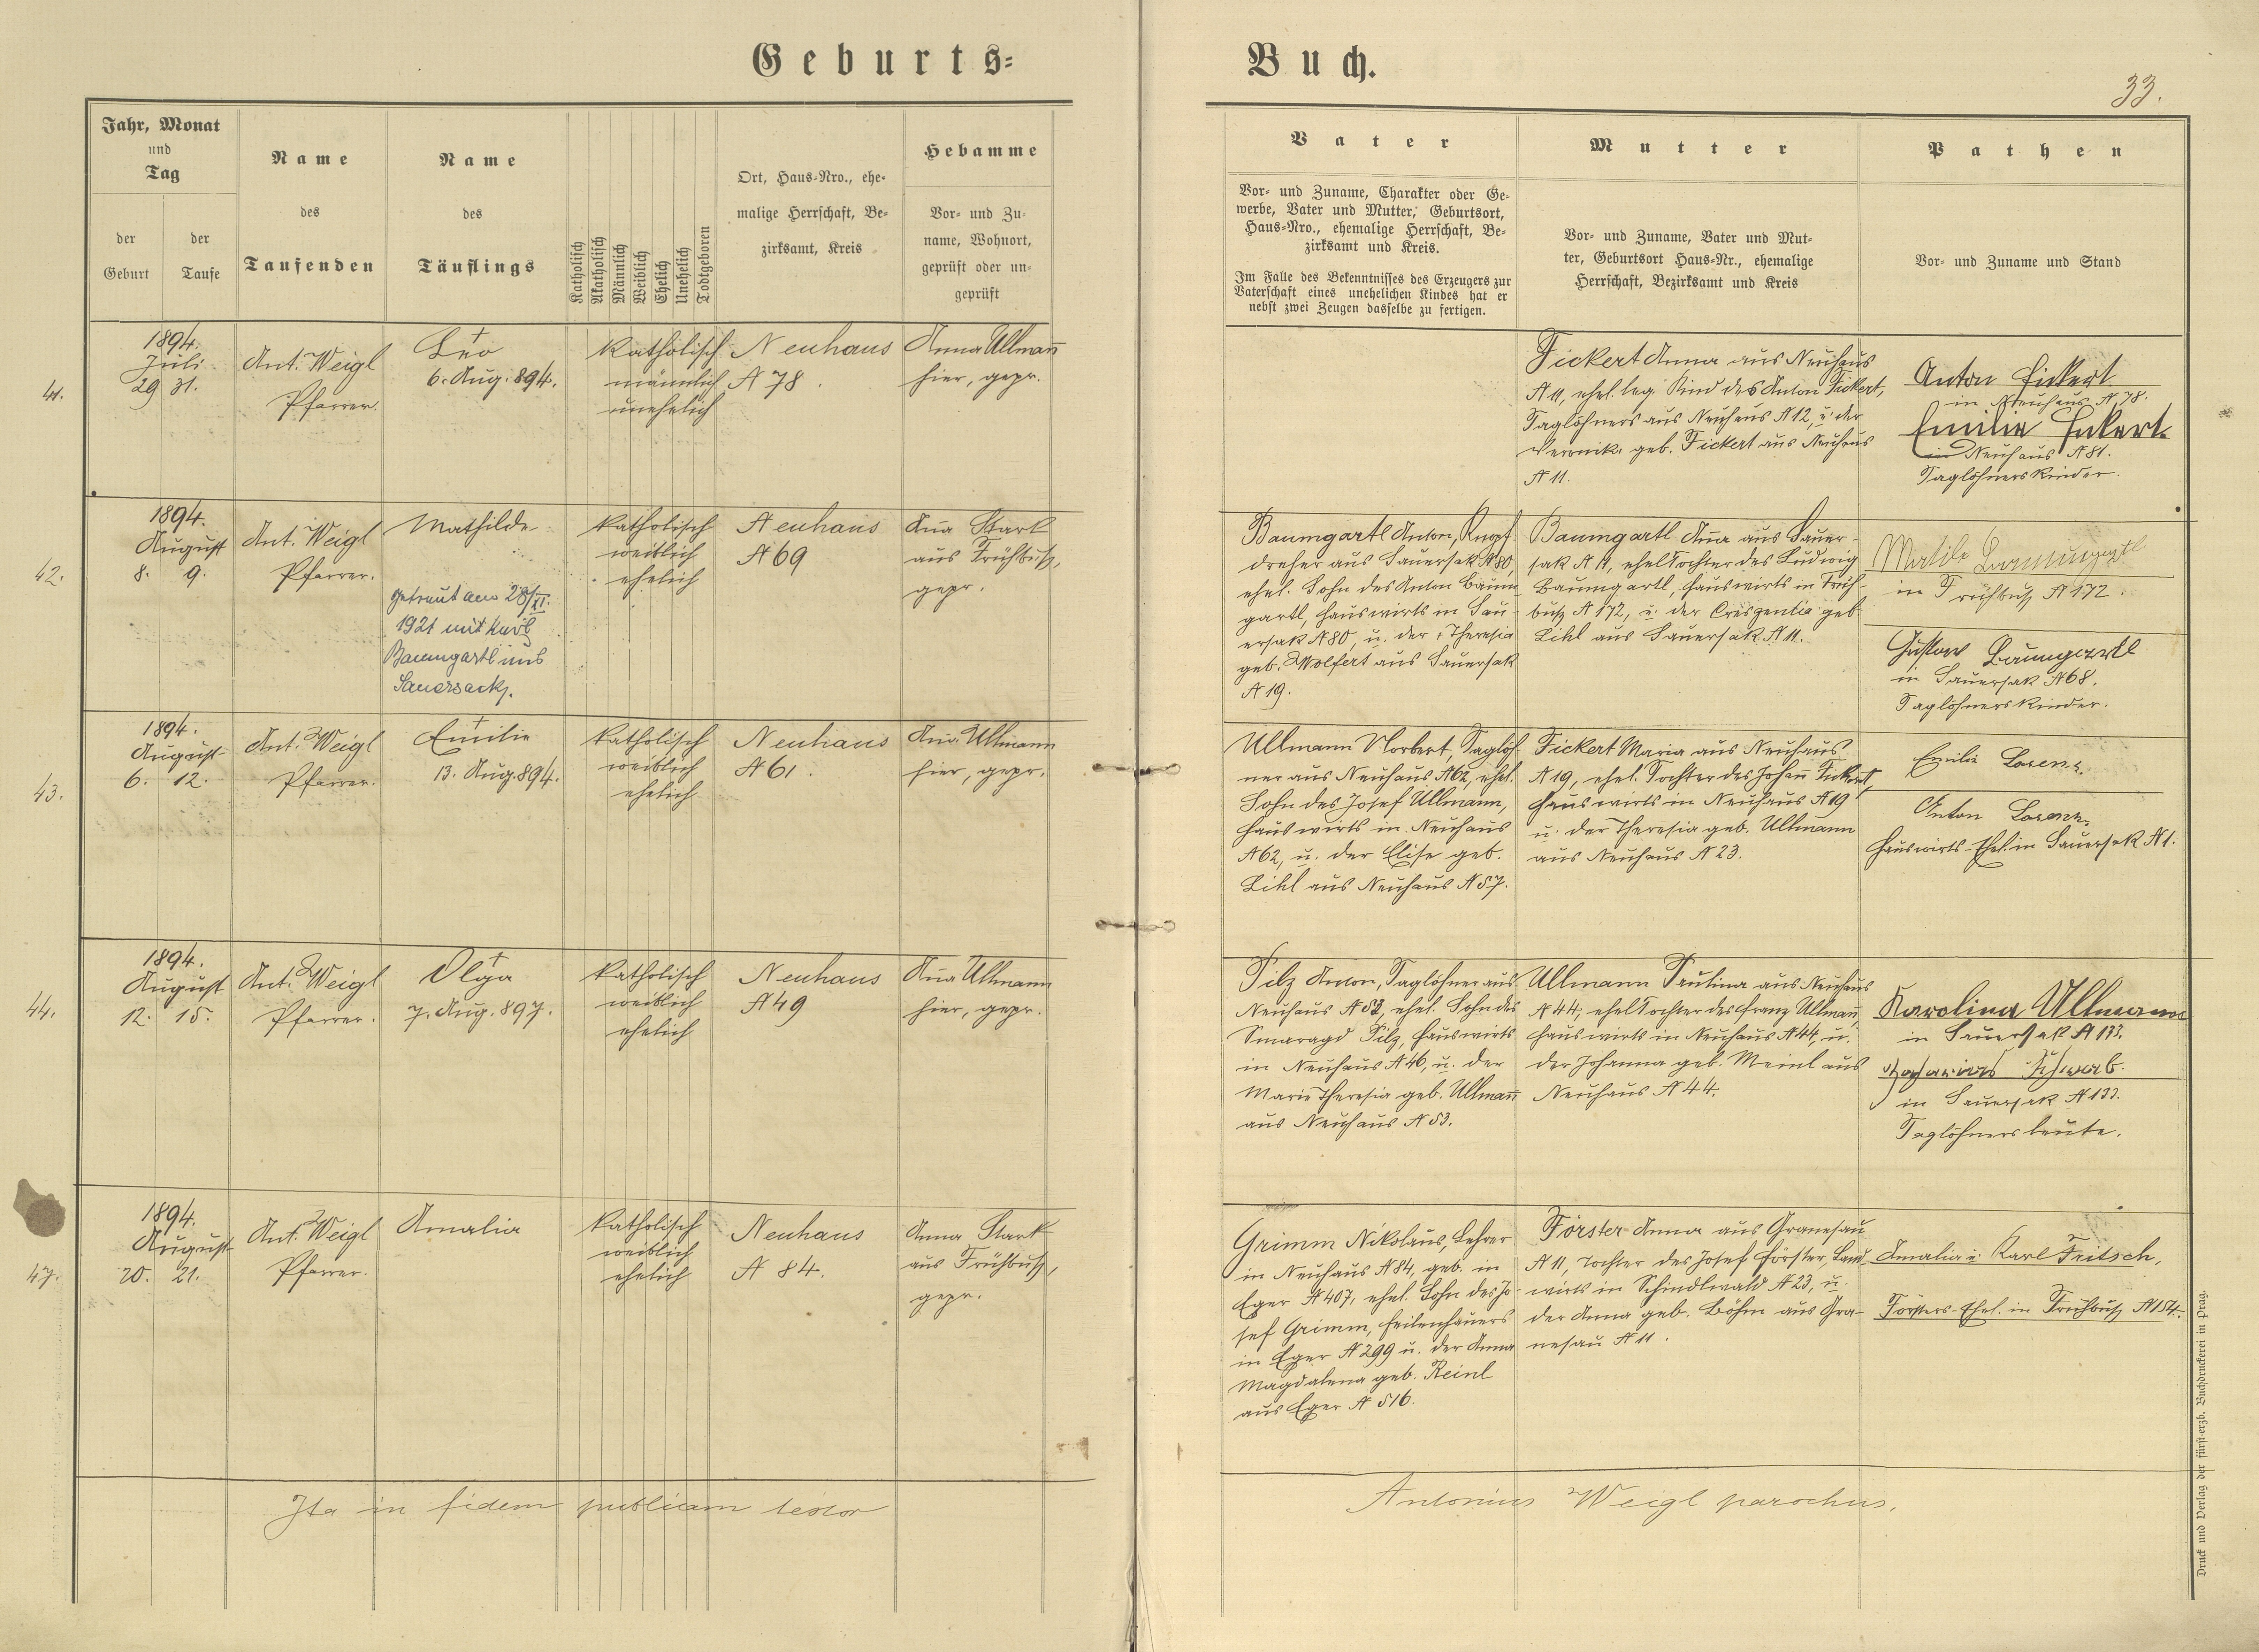 Geburts-
Buch.
33.
Jahr, Monat
und
Tag
der
Geburt
der
Taufe
Name
des
Taufenden
Name
des
Täuflings
Katholisch
Akatholisch
Männlich
Weiblich
Ehelich
Unehelich
Todtgeboren
Ort, Haus-Nro., ehe-
malige Herrschaft, Be-
zirksamt, Kreis
Hebamme
Vor- und Zu-
name, Wohnort,
geprüft oder un-
geprüft
Vater
Vor- und Zuname, Charakter oder Ge-
werbe, Vater und Mutter, Geburtsort,
Haus-Nro., ehemalige Herrschaft, Be-
zirksamt und Kreis.
Im Falle des Bekenntnisses des Erzeugers zur
Vaterschaft eines unehelichen Kindes hat er
nebst zwei Zeugen dasselbe zu fertigen.
Mutter
Vor- und Zuname, Vater und Mut-
ter, Geburtsort Haus-Nr., ehemalige
Herrschaft, Bezirksamt und Kreis
Pathen
Vor- und Zuname und Stand
41.
1894.
Juli
29 31.
Ant. Weigl
Pfarrer.
Leo
6. Aug. 894.
katholisch
männlich
unehelich
Neuhaus
N 78.
Anna Ullman̄
hier, gepr.
Fickert Anna aus Neuhaus
N 11, ehel. leg. Kind des Anton Fickert,
Taglöhners aus Neuhaus N 12, u. der
Veronika geb. Fickert aus Neuhaus
N 11.
Anton Fickert
in Neuhaus N 78.
Emilie Fickert
in Neuhaus N 81.
Taglöhnerskinder.
42.
1894.
August
8. 9.
Ant. Weigl
Pfarrer.
Mathilde
getraut am 28/XI.
1921 mit Karl
Baumgartl aus
Sauersack.
katholisch
weiblich
ehelich
Neuhaus
N 69
An̄a Stark
aus Frühbuß,
gepr.
Baumgartl Anton, Knopf-
dreher aus Sauersak N 80,
ehel. Sohn des Anton Baum-
gartl, Hauswirts in Sau-
ersak N 80, u. der Theresia
geb. Wolfert aus Sauersak
N 19.
Baumgartl An̄a aus Sauer-
sak N 11, ehel Tochter des Ludwig
Baumgartl, Hauswirts in Früh-
buß N 172, u. der Creszentia geb.
Liehl aus Sauersak N 11.
Matilde Baumgartl
in Frühbuß N 172.
Gustav Baumgartl
in Sauersak N 68.
Taglöhnerskinder.
43.
1894.
August
6. 12.
Ant. Weigl
Pfarrer.
Emilie
13. Aug. 894.
katholisch
weiblich
ehelich
Neuhaus
N 61.
An̄a Ullmann
hier, gepr.
Ullmann Norbert, Taglöh-
ner aus Neuhaus N 62, ehel.
Sohn des Josef Ullmann,
Hauswirts in Neuhaus
N 62, u. der Elise geb.
Liehl aus Neuhaus N 57.
Fickert Maria aus Neuhaus
N 19, ehel. Tochter des Johan̄ Fickert,
Hauswirts in Neuhaus N 19
u. der Theresia geb. Ullmann
aus Neuhaus N 23.
Emilie Lorenz.
Anton Lorenz.
Hauswirts-Ehel. in Sauersak N 1.
44.
1894.
August
12. 15.
Ant. Weigl
Pfarrer.
Olga
7. Aug. 897.
katholisch
weiblich
ehelich
Neuhaus
N 49
An̄a Ullmann
hier, gepr.
Pilz Anton, Taglöhner aus
Neuhaus N 52, ehel. Sohn des
Smaragd Pilz, Hauswirts
in Neuhaus N 46, u. der
Marie Theresia geb. Ullman̄
aus Neuhaus N 53.
Ullmann Paulina aus Neuhaus
N 44, ehel Tochter des Franz Ullman̄,
Hauswirts in Neuhaus N 44, u.
der Johanna geb. Meinl aus
Neuhaus N 44.
Karolina Ullmann
in Sauersak N 133.
Zacharias Schwab.
in Sauersak N 133.
Taglöhnersleute.
47.
1894.
August
20. 21.
Ant. Weigl
Pfarrer.
Amalia
katholisch
weiblich
ehelich
Neuhaus
N 84.
Anna Stark
aus Frühbuß,
gepr.
Grimm Nikolaus, Lehrer
in Neuhaus N 84, geb. in
Eger N 407, ehel. Sohn des Jo-
sef Grimm, Feilenhauers
in Eger N 299 u. der Anna
Magdalena geb. Reinl
aus Eger N 516.
Förster Anna aus Granesau
N 11, Tochter des Josef Förster, Land-
wirts in Schindlwald N 23, u.
der Anna geb. Böhm aus Gra-
nesau N 11.
Amalia u. Karl Fritsch,
Försters-Ehel. in Frühbuß N 154.
Ita in fidem publicam testor
Antonius Weigl parochus.
Druck und Verlag der fürst-erzb. Buchdruckerei in Prag.